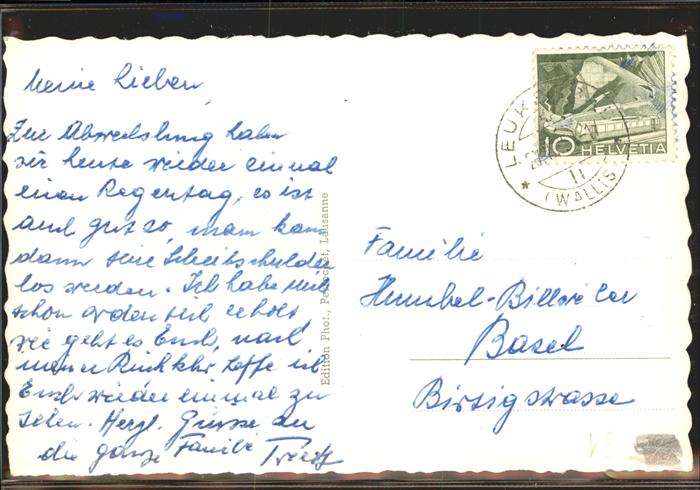 Meine Lieben
Zur Abwechslung haben
wir heute wieder einmal
einen Regentag, es ist
auch gut so, man kann
dann seine Schreibschulden
los werden. Ich habe mich
schon ordentlich erholt
wie geht es Euch, nach
meiner Rückkehr hoffe ich
Euch wieder einmal zu
sehen. Herzl. Grüsse an
die ganze Familie
Edition Phot., Perrochet, Lausanne
10 HELVETIA
LEUK
(WALLIS)
Familie
Humbel-Billwiler
Basel
Birsigstrasse